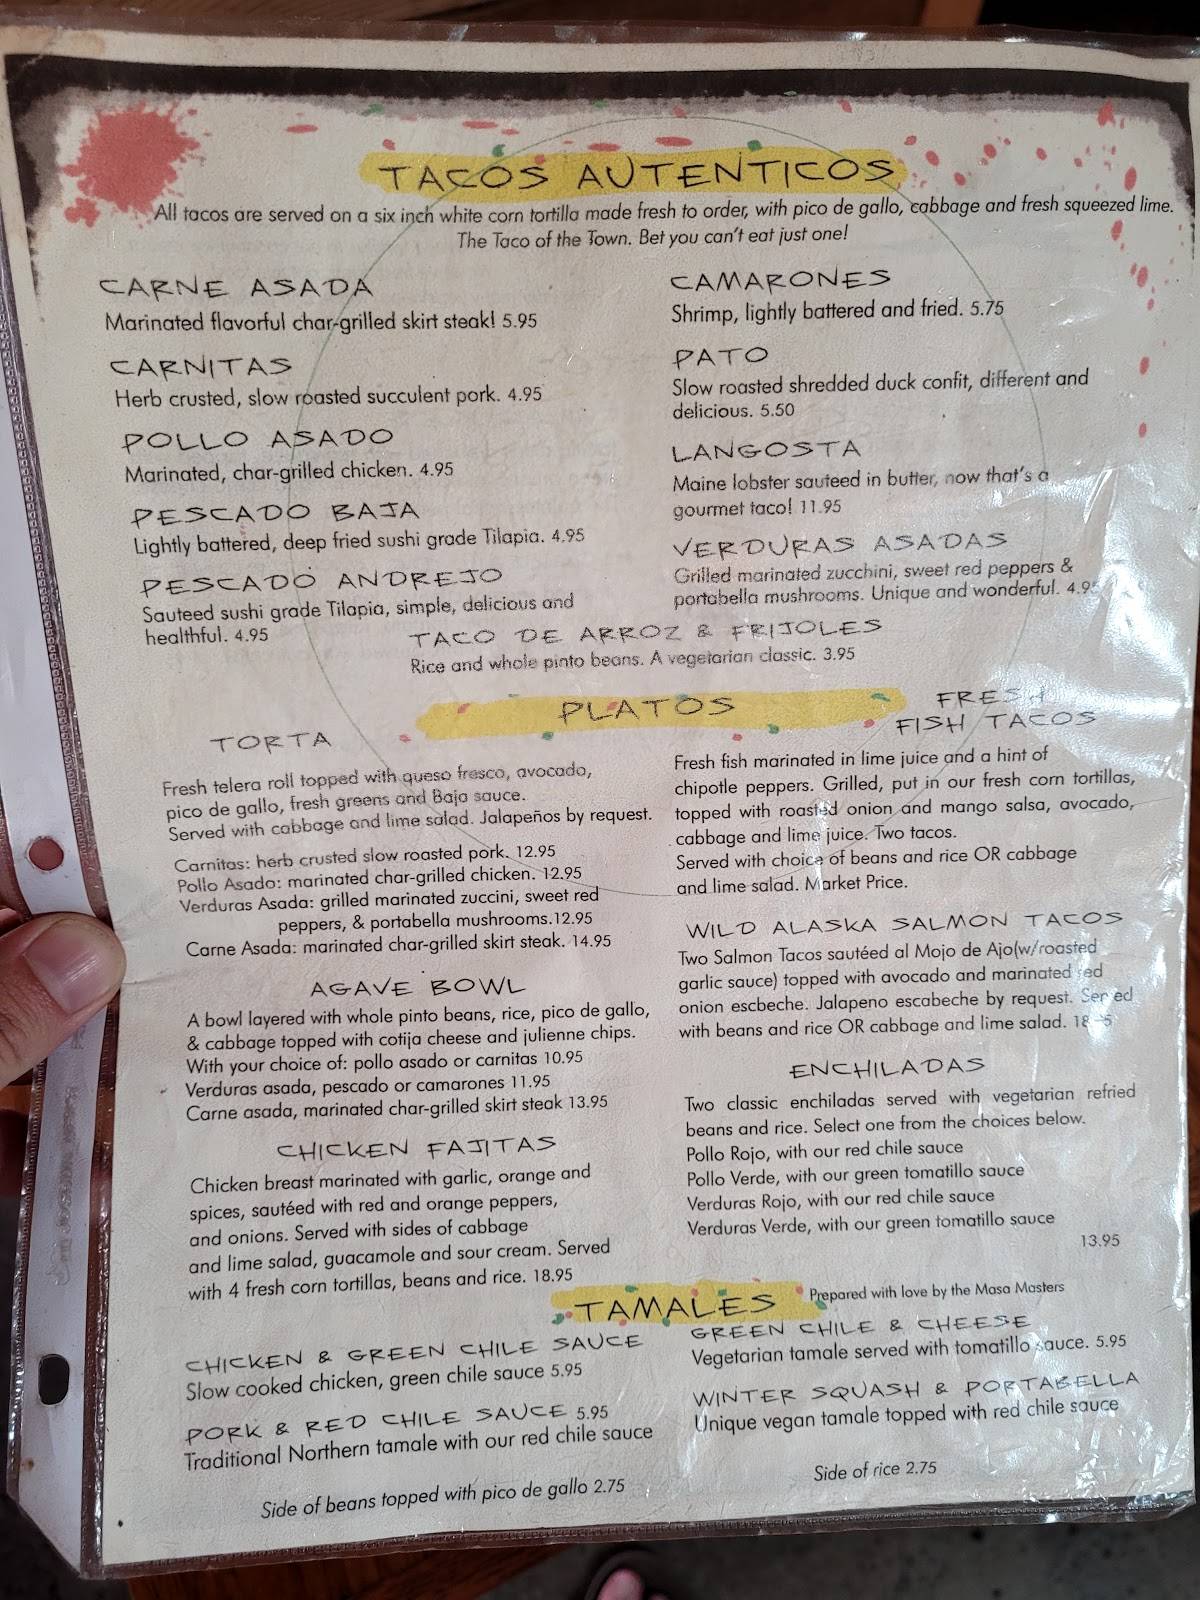 TACOS AUTENTICOS
All tacos are served on a six inch white corn tortilla made fresh to order, with pico de gallo, cabbage and fresh squeezed lime.
The Taco of the Town. Bet you can't eat just one!
CARNE ASADA
Marinated flavorful char-grilled skirt steak! 5.95
CARNITAS
Herb crusted, slow roasted succulent pork. 4.95
POLLO ASADO
Marinated, char-grilled chicken. 4.95
PESCADO BAJA
Lightly battered, deep fried sushi grade Tilapia. 4.95
PESCADO ANDREJO
Sauteed sushi grade Tilapia, simple, delicious and
healthful. 4.95
CAMARONES
Shrimp, lightly battered and fried. 5.75
PATO
Slow roasted shredded duck confit, different and
delicious. 5.50
LANGOSTA
Maine lobster sauteed in butter, now that's a
gourmet taco! 11.95
VERDURAS ASADAS
Grilled marinated zucchini, sweet red peppers &
portabella mushrooms. Unique and wonderful. 4.95
TACO DE ARROZ & FRIJOLES
Rice and whole pinto beans. A vegetarian classic. 3.95
PLATOS
TORTA
Fresh telera roll topped with queso fresco, avocado,
pico de gallo, fresh greens and Baja sauce.
Served with cabbage and lime salad. Jalapeños by request.
Carnitas: herb crusted slow roasted pork. 12.95
Pollo Asado: marinated char-grilled chicken. 12.95
Verduras Asada: grilled marinated zuccini, sweet red
peppers, & portabella mushrooms.12.95
Carne Asada: marinated char-grilled skirt steak. 14.95
AGAVE BOWL
A bowl layered with whole pinto beans, rice, pico de gallo,
& cabbage topped with cotija cheese and julienne chips.
With your choice of: pollo asado or carnitas 10.95
Verduras asada, pescado or camarones 11.95
Carne asada, marinated char-grilled skirt steak 13.95
CHICKEN FAJITAS
Chicken breast marinated with garlic, orange and
spices, sautéed with red and orange peppers,
and onions. Served with sides of cabbage
and lime salad, guacamole and sour cream. Served
with 4 fresh corn tortillas, beans and rice. 18.95
FRESH
FISH TACOS
Fresh fish marinated in lime juice and a hint of
chipotle peppers. Grilled, put in our fresh corn tortillas,
topped with roasted onion and mango salsa, avocado,
cabbage and lime juice. Two tacos.
Served with choice of beans and rice OR cabbage
and lime salad. Market Price.
WILD ALASKA SALMON TACOS
Two Salmon Tacos sautéed al Mojo de Ajo(w/roasted
garlic sauce) topped with avocado and marinated red
onion escbeche. Jalapeno escabeche by request. Served
with beans and rice OR cabbage and lime salad.
ENCHILADAS
Two classic enchiladas served with vegetarian refried
beans and rice. Select one from the choices below.
Pollo Rojo, with our red chile sauce
Pollo Verde, with our green tomatillo sauce
Verduras Rojo, with our red chile sauce
Verduras Verde, with our green tomatillo sauce
13.95
TAMALES
Prepared with love by the Masa Masters
CHICKEN & GREEN CHILE SAUCE
Slow cooked chicken, green chile sauce 5.95
PORK & RED CHILE SAUCE 5.95
Traditional Northern tamale with our red chile sauce
GREEN CHILE & CHEESE
Vegetarian tamale served with tomatillo sauce. 5.95
WINTER SQUASH & PORTABELLA
Unique vegan tamale topped with red chile sauce
Side of beans topped with pico de gallo 2.75
Side of rice 2.75